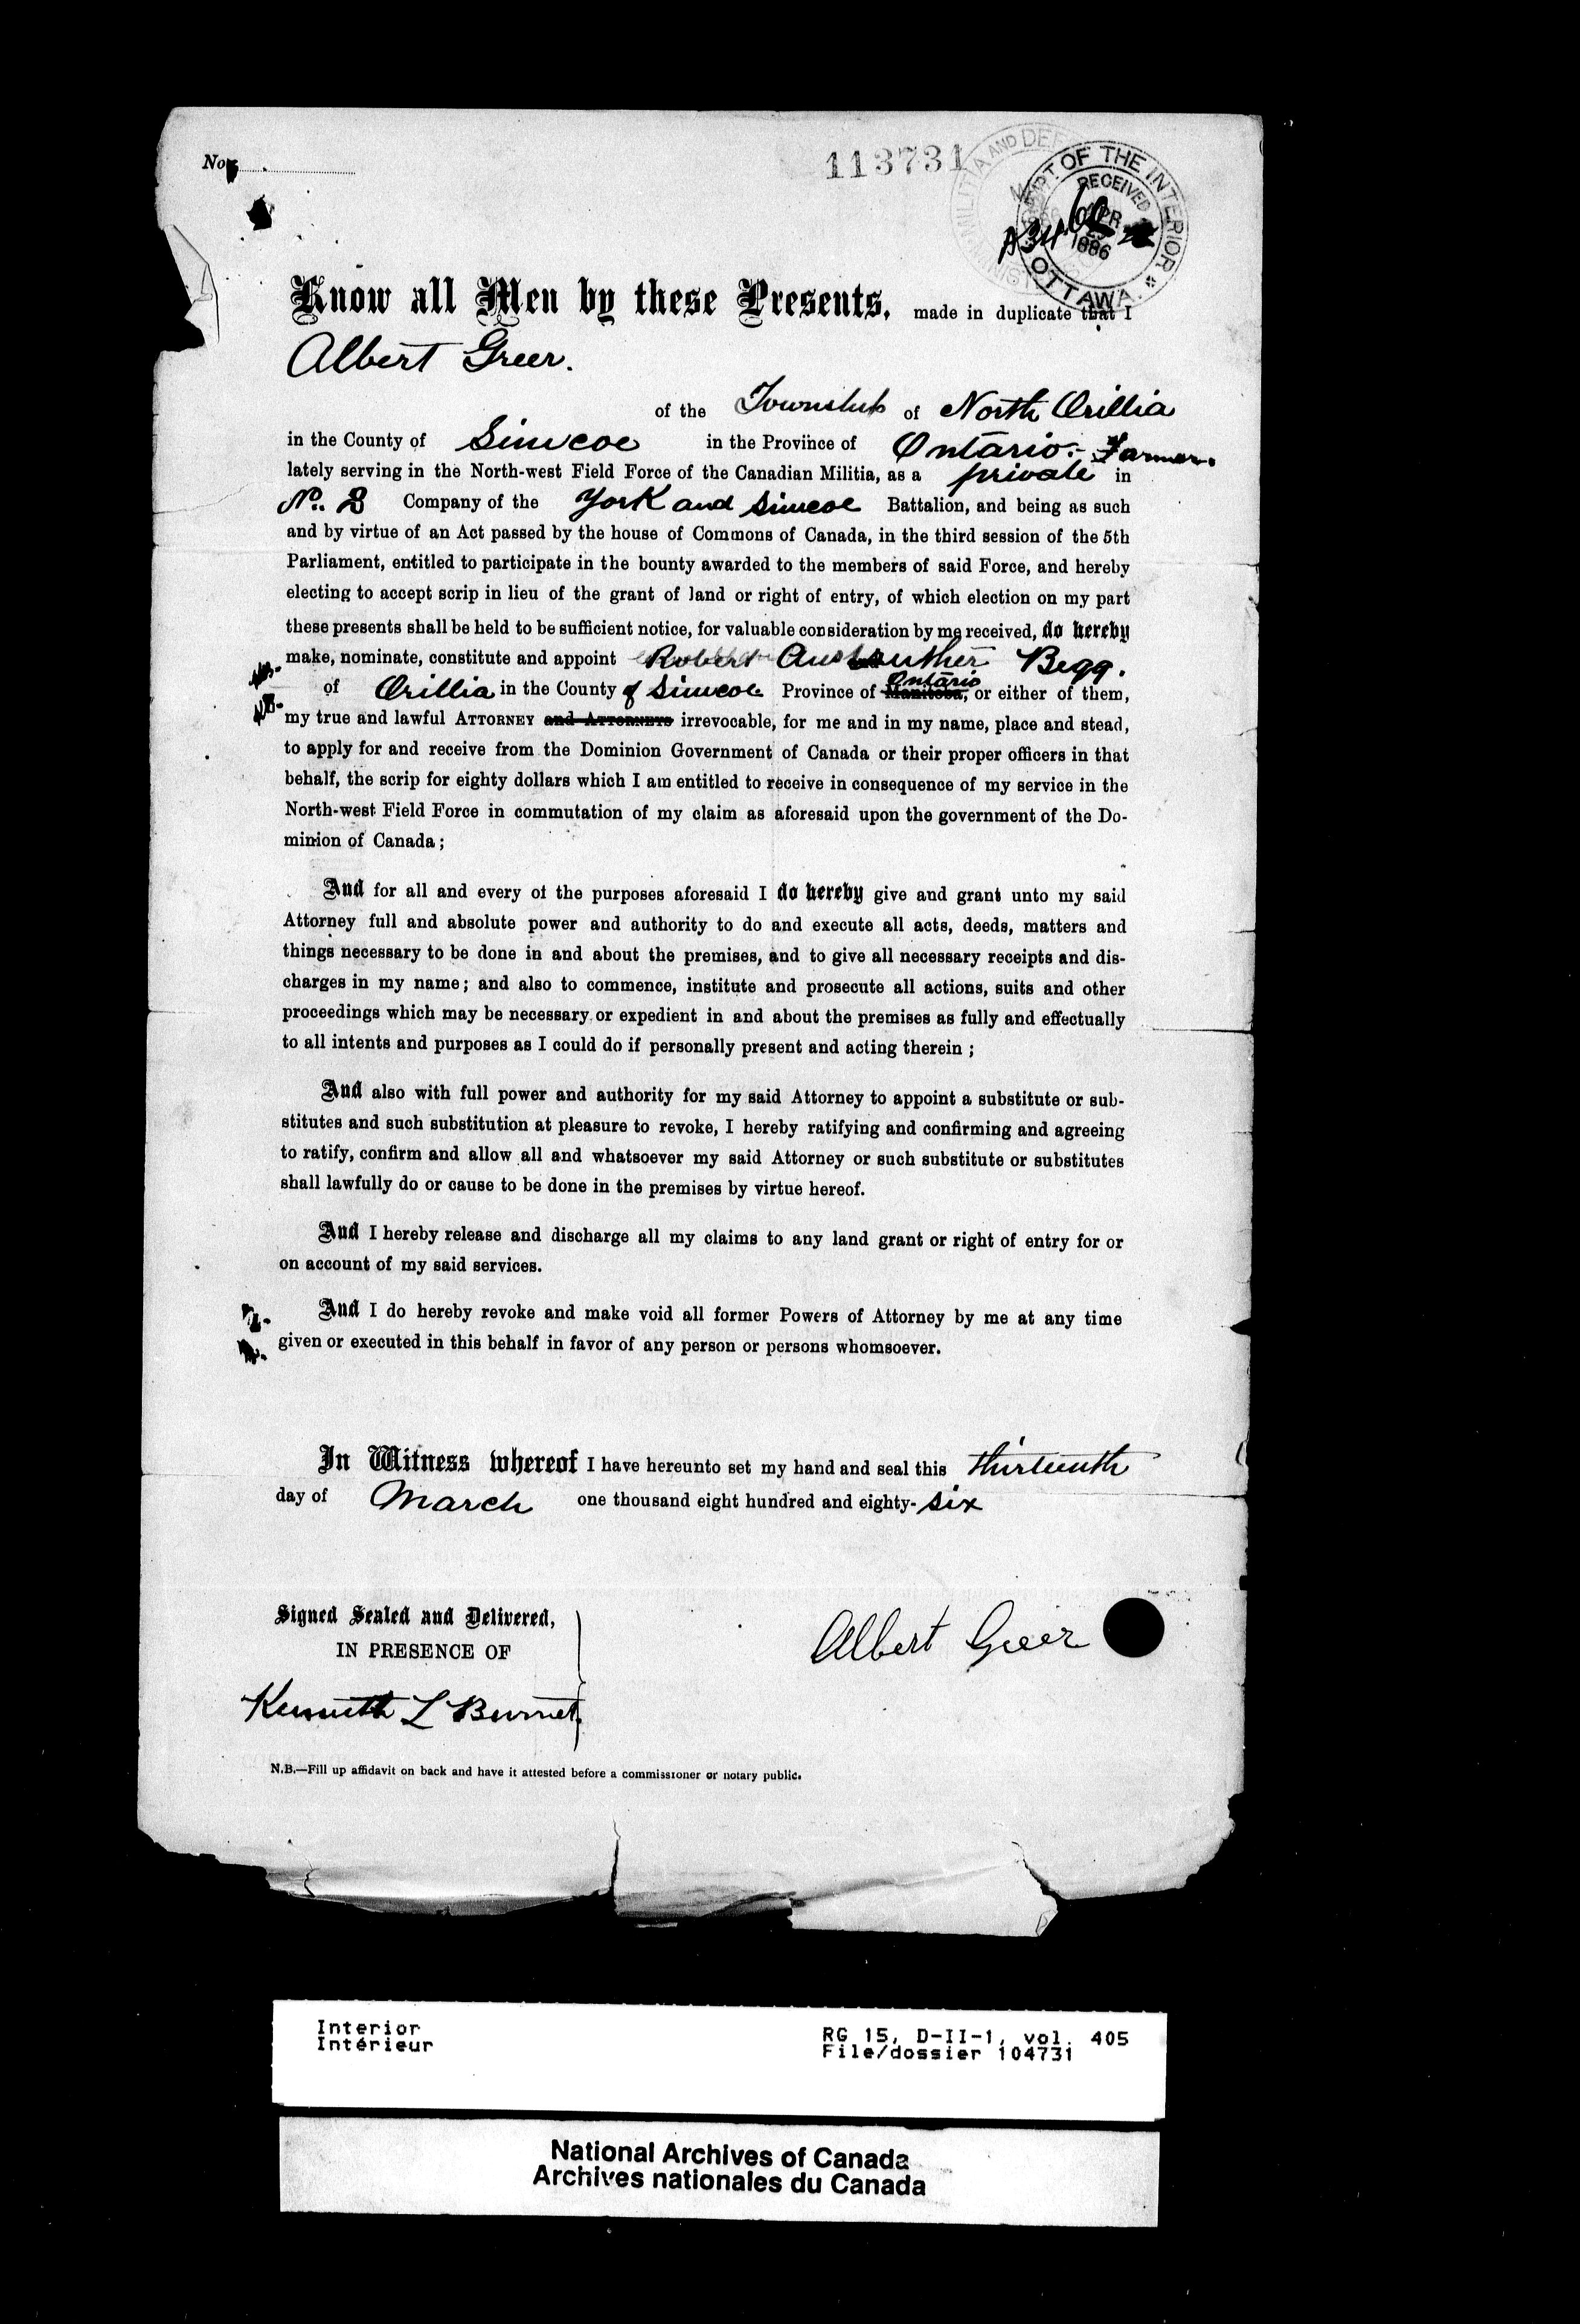 No.
113731
MILITIA AND DEF
DEPT. OF THE INTERIOR
RECEIVED
APR
1886
OTTAWA.
Know all Men by these Presents, made in duplicate that I
Albert Greer.
of the Township of North Orillia
in the County of Simcoe in the Province of Ontario. Farmer.
lately serving in the North-west Field Force of the Canadian Militia, as a private in
No. 2 Company of the York and Simcoe Battalion, and being as such
and by virtue of an Act passed by the house of Commons of Canada, in the third session of the 5th
Parliament, entitled to participate in the bounty awarded to the members of said Force, and hereby
electing to accept scrip in lieu of the grant of land or right of entry, of which election on my part
these presents shall be held to be sufficient notice, for valuable consideration by me received, do hereby
make, nominate, constitute and appoint Robert Begg.
of Orillia in the County of Simcoe Province of Manitoba, Ontario or either of them,
my true and lawful ATTORNEY and ATTORNEYS irrevocable, for me and in my name, place and stead,
to apply for and receive from the Dominion Government of Canada or their proper officers in that
behalf, the scrip for eighty dollars which I am entitled to receive in consequence of my service in the
North-west Field Force in commutation of my claim as aforesaid upon the government of the Do-
minion of Canada;
And for all and every of the purposes aforesaid I do hereby give and grant unto my said
Attorney full and absolute power and authority to do and execute all acts, deeds, matters and
things necessary to be done in and about the premises, and to give all necessary receipts and dis-
charges in my name; and also to commence, institute and prosecute all actions, suits and other
proceedings which may be necessary or expedient in and about the premises as fully and effectually
to all intents and purposes as I could do if personally present and acting therein;
And also with full power and authority for my said Attorney to appoint a substitute or sub-
stitutes and such substitution at pleasure to revoke, I hereby ratifying and confirming and agreeing
to ratify, confirm and allow all and whatsoever my said Attorney or such substitute or substitutes
shall lawfully do or cause to be done in the premises by virtue hereof.
And I hereby release and discharge all my claims to any land grant or right of entry for or
on account of my said services.
And I do hereby revoke and make void all former Powers of Attorney by me at any time
given or executed in this behalf in favor of any person or persons whomsoever.
In Witness whereof I have hereunto set my hand and seal this thirteenth
day of March one thousand eight hundred and eighty-six
Signed Sealed and Delivered,
IN PRESENCE OF
Albert Greer
Kenneth L Burnet
N.B.—Fill up affidavit on back and have it attested before a commissioner or notary public.
Interior
Intérieur
RG 15, D-II-1, vol. 405
File/dossier 104731
National Archives of Canada
Archives nationales du Canada